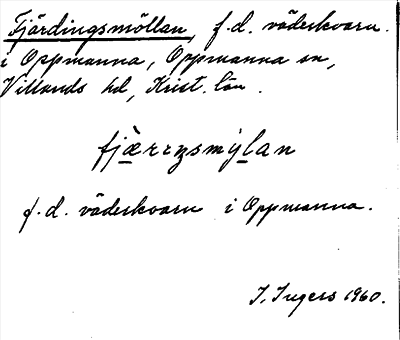 Fjärdingsmöllan, f.d. väderkvarn.
i Oppmanna, Oppmanna sn,
Villands hd, Krist. län.
fjæ̱rrɩŋsmỳ̱lan
f.d. väderkvarn i Oppmanna.
I. Ingers 1960.